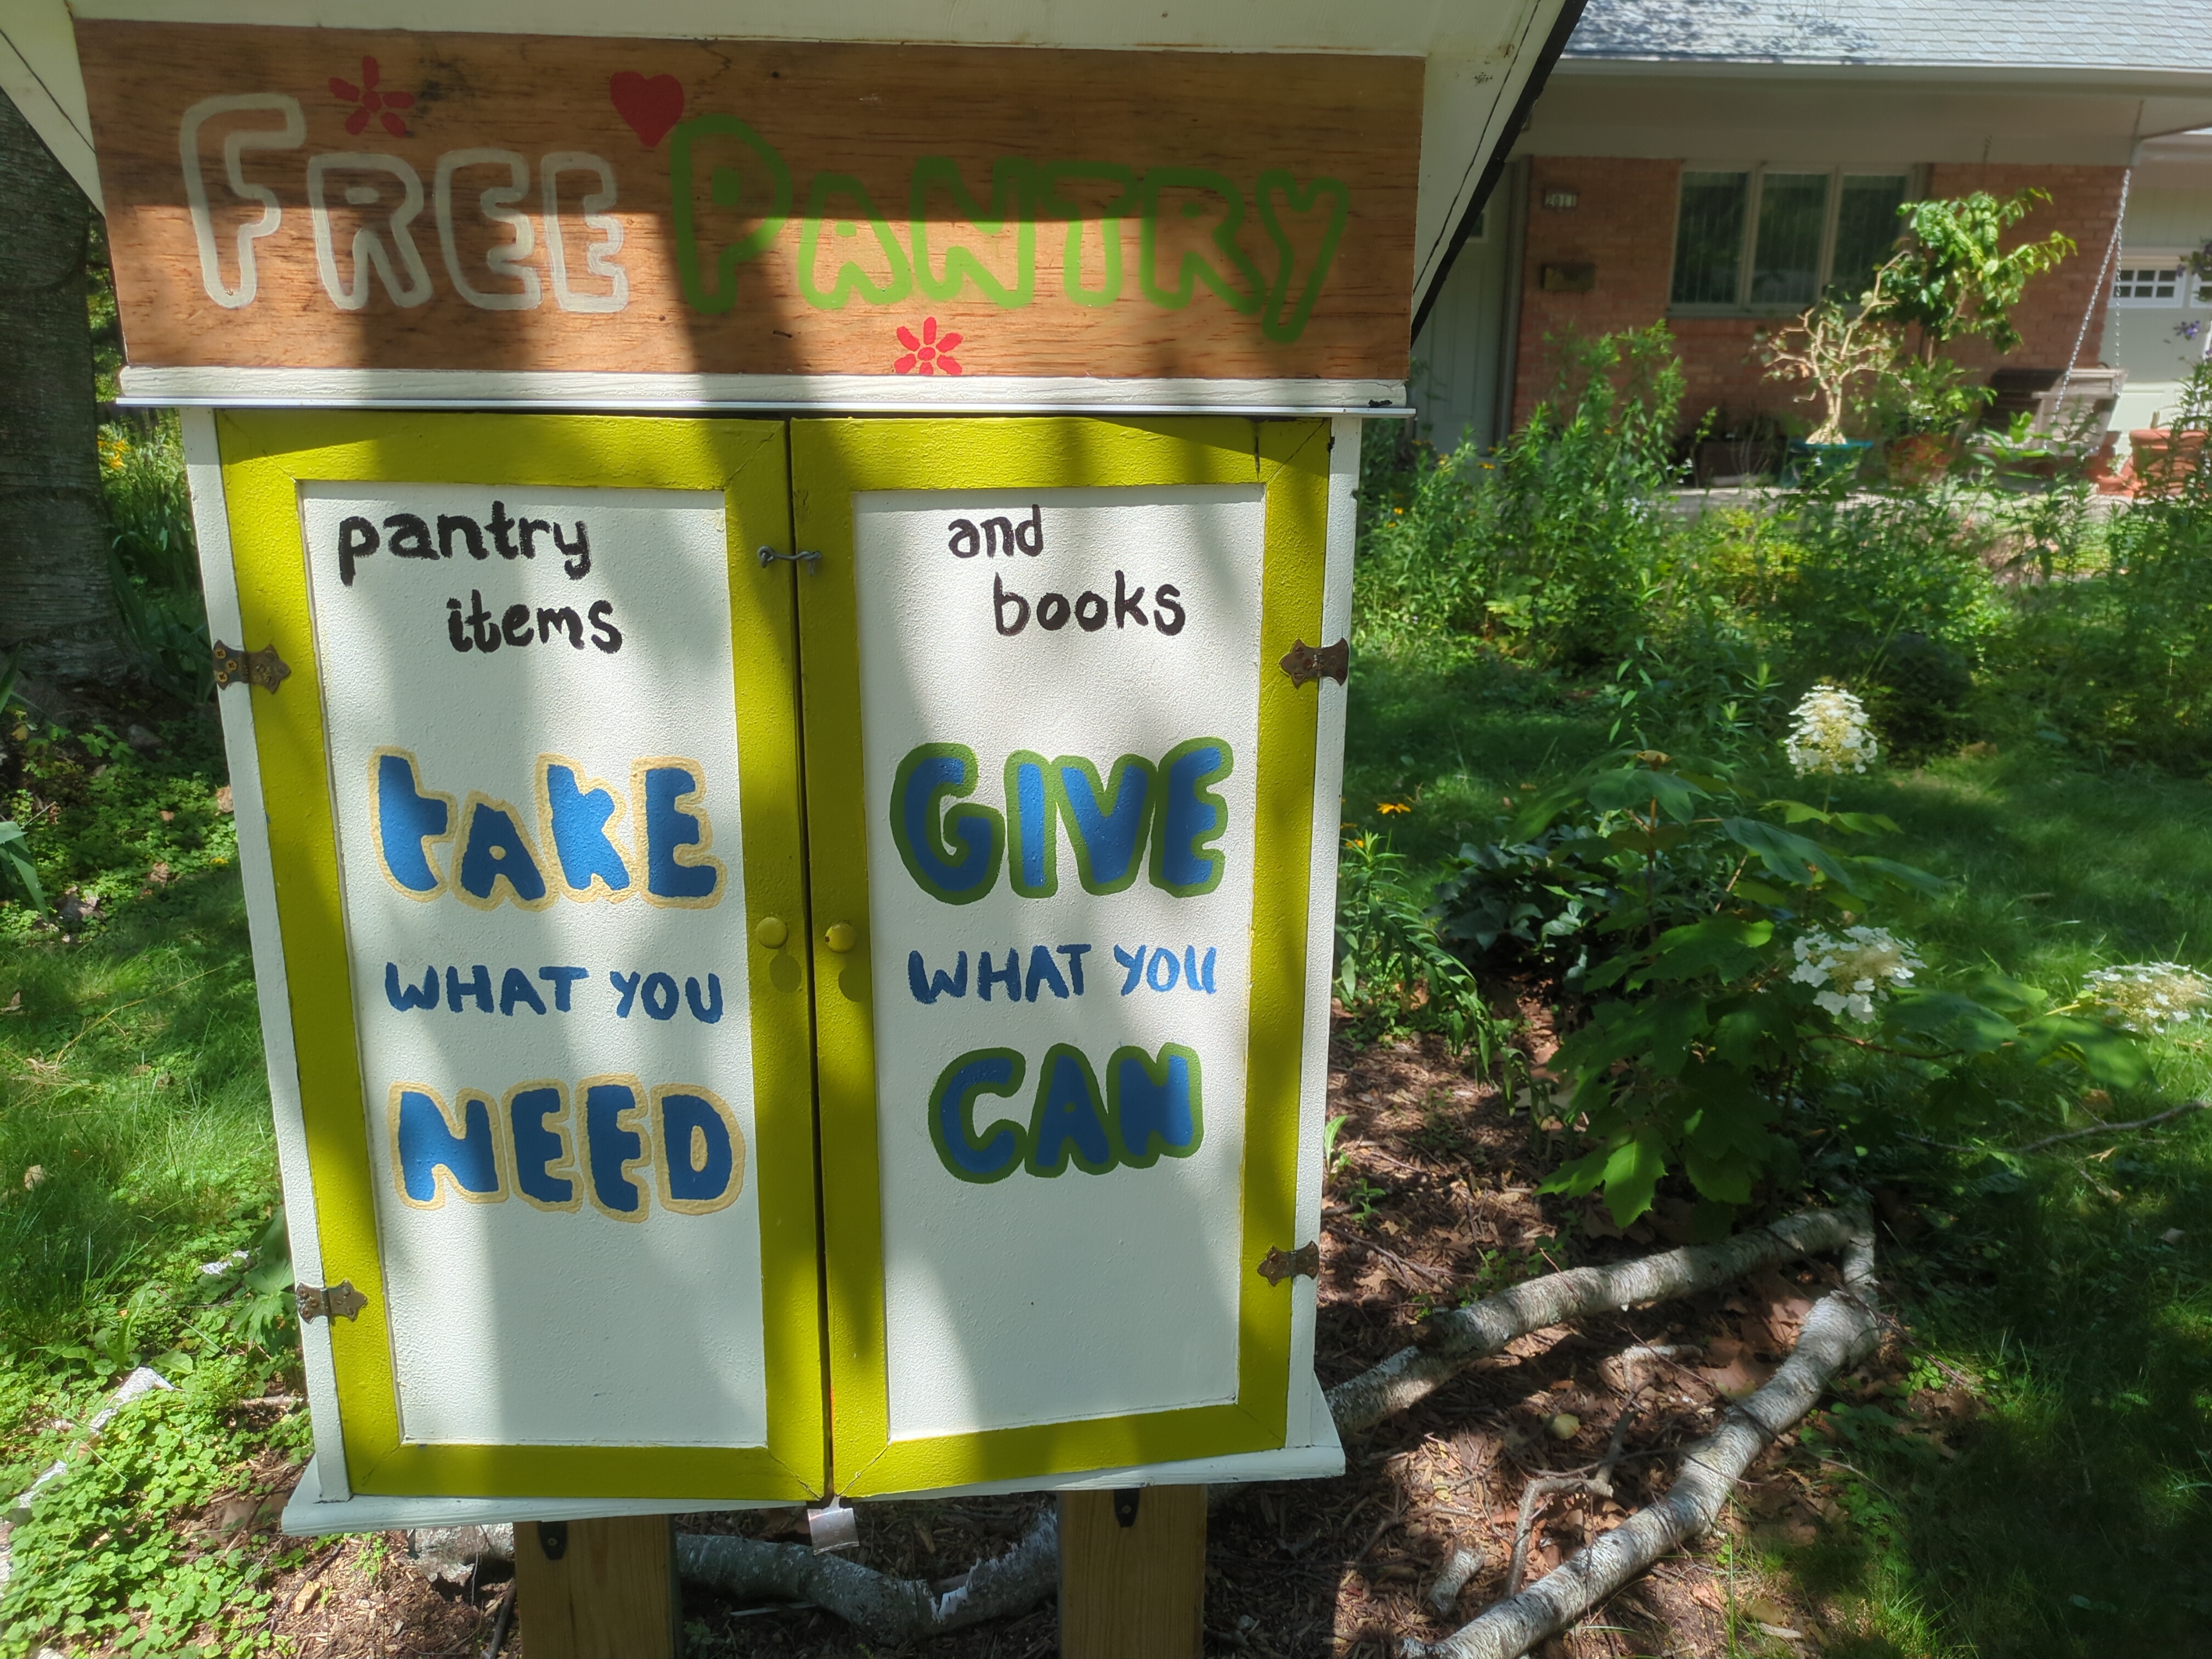 FREE PANTRY
pantry
items
TAKE
WHAT YOU
NEED
and
books
GIVE
WHAT YOU
CAN